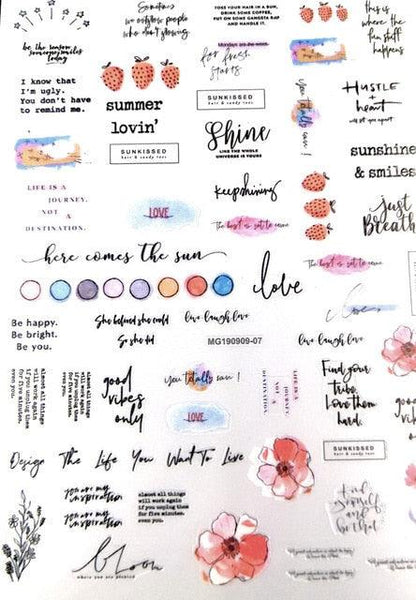 be the reason
someone smiles
today
Sometimes
we outgrow people
who don't
TOSS YOUR HAIR IN A BUN,
DRINK SOME COFFEE,
PUT ON SOME GANGSTA RAP
AND HANDLE IT.
this is
where the
fun stuff
happens
I know that
I'm ugly.
You don't have
to remind me.
summer
lovin'
Mondays are the week
for fresh
starts
SUNKISSED
hair & sandy toes
you totally can!
HUSTLE
+
heart
will set you apart
Shine
LIKE THE WHOLE
UNIVERSE IS YOURS
SUNKISSED
hair & sandy toes
sunshine
& smiles
LIFE IS A
JOURNEY,
NOT A
DESTINATION.
LOVE
keep shining
The best is yet to come
just
Breathe
here comes the sun
love
The best is yet to come
Love
Be happy.
Be bright.
Be you.
She believed she could
So she did
live laugh love
MG190909-07
live laugh love
almost all things
will work again
if you unplug them
for five minutes.
even you.
almost all things
will work again
if you unplug them
for five minutes.
even you.
good
vibes
only
you totally can!
LOVE
LIFE IS A
JOURNEY,
NOT A
DESTINATION.
LIFE IS A
JOURNEY,
NOT A
DESTINATION.
Find your
tribe.
Love them
hard.
SUNKISSED
hair & sandy toes
Design The Life You Want To Live
you are my
inspiration
you are my
inspiration
almost all things
will work again
if you unplug them
for five minutes.
even you.
find
yourself
and
be that
bloom
where you are planted